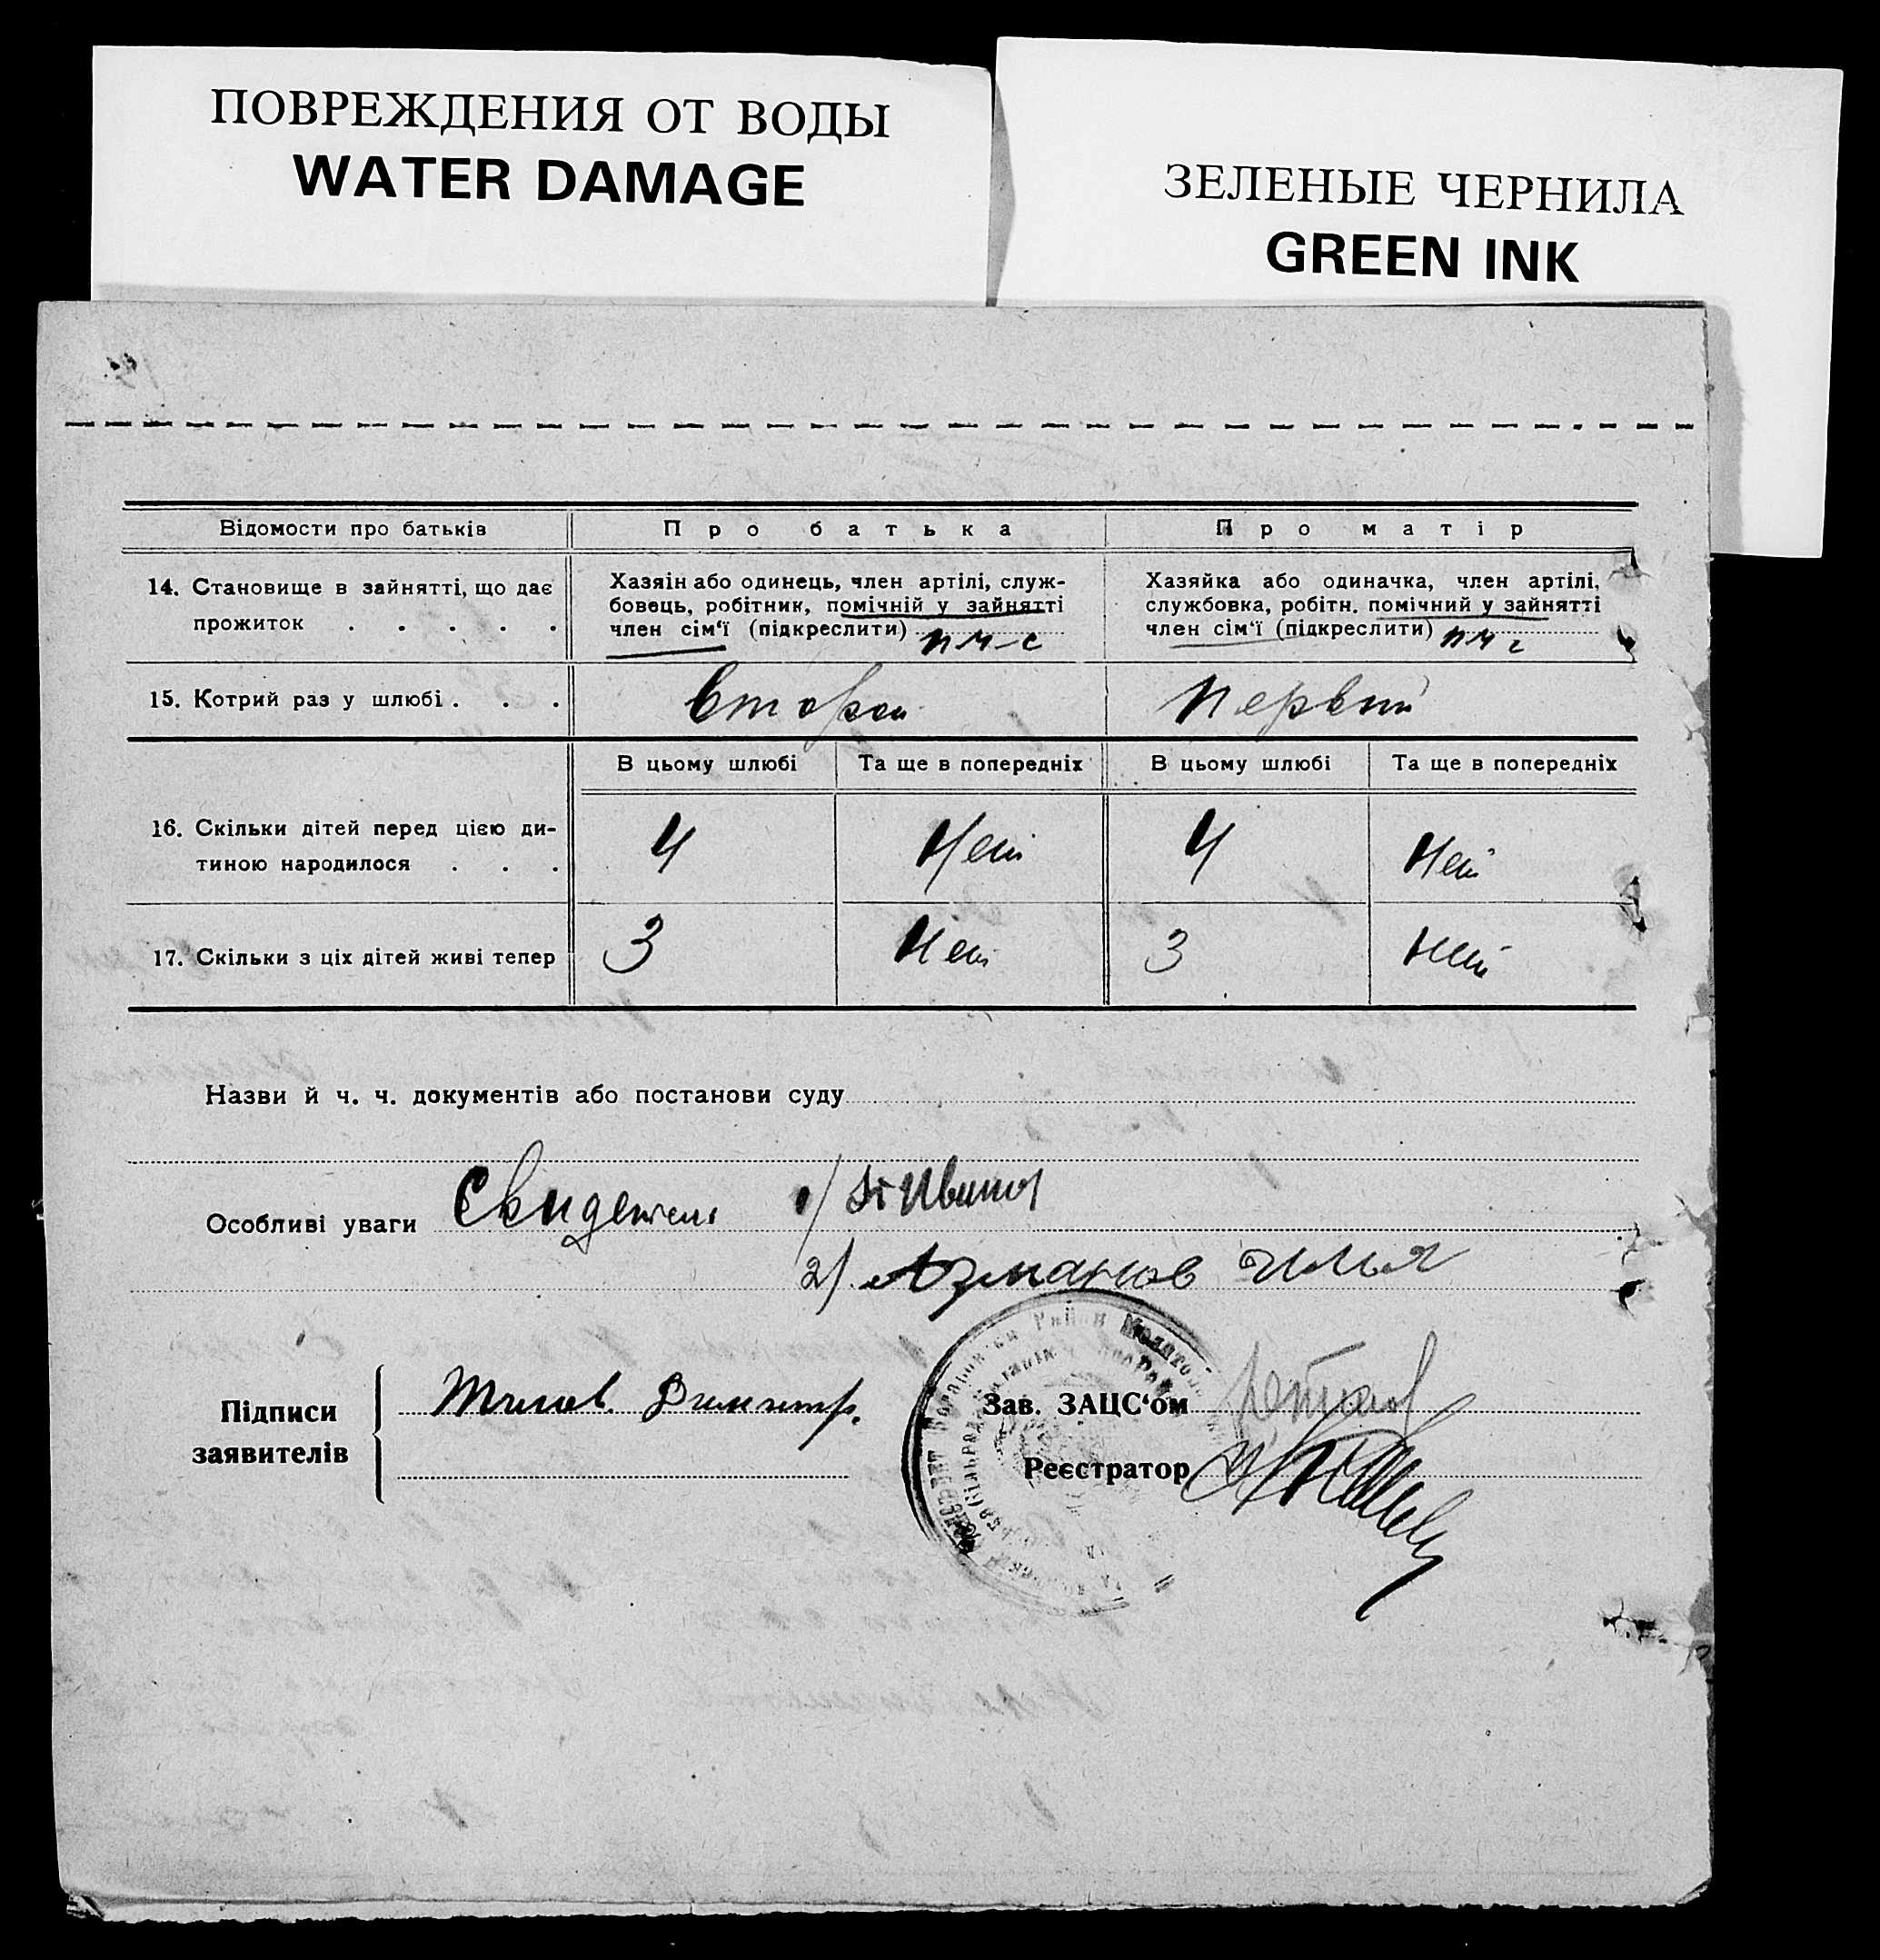 ПОВРЕЖДЕНИЯ ОТ ВОДЫ
WATER DAMAGE
ЗЕЛЕНЫЕ ЧЕРНИЛА
GREEN INK
Відомости про батьків
Про батька
Про матір
14. Становище в зайнятті, що дає
прожиток . . . . .
Хазяін або одинець, член артілі, служ-
бовець, робітник, помічній у зайнятті
член сім'ї (підкреслити) пч-с
Хазяйка або одиначка, член артілі,
службовка, робітн. помічний у зайнятті
член сім'ї (підкреслити) пч с
15. Котрий раз у шлюбі . . .
Второй
Первый
В цьому шлюбі
Та ще в попередніх
В цьому шлюбі
Та ще в попередніх
16. Скільки дітей перед цією ди-
тиною народилося . . .
4
Нет
4
Нет
17. Скільки з ціх дітей живі тепер
3
Нет
3
Нет
Назви й ч. ч. документів або постанови суду
Особливі уваги Свидетели 1/
2/. Азманов Илья
Підписи
заявителів
Димитр.
Зав. ЗАЦС'ом
Реєстратор
Район